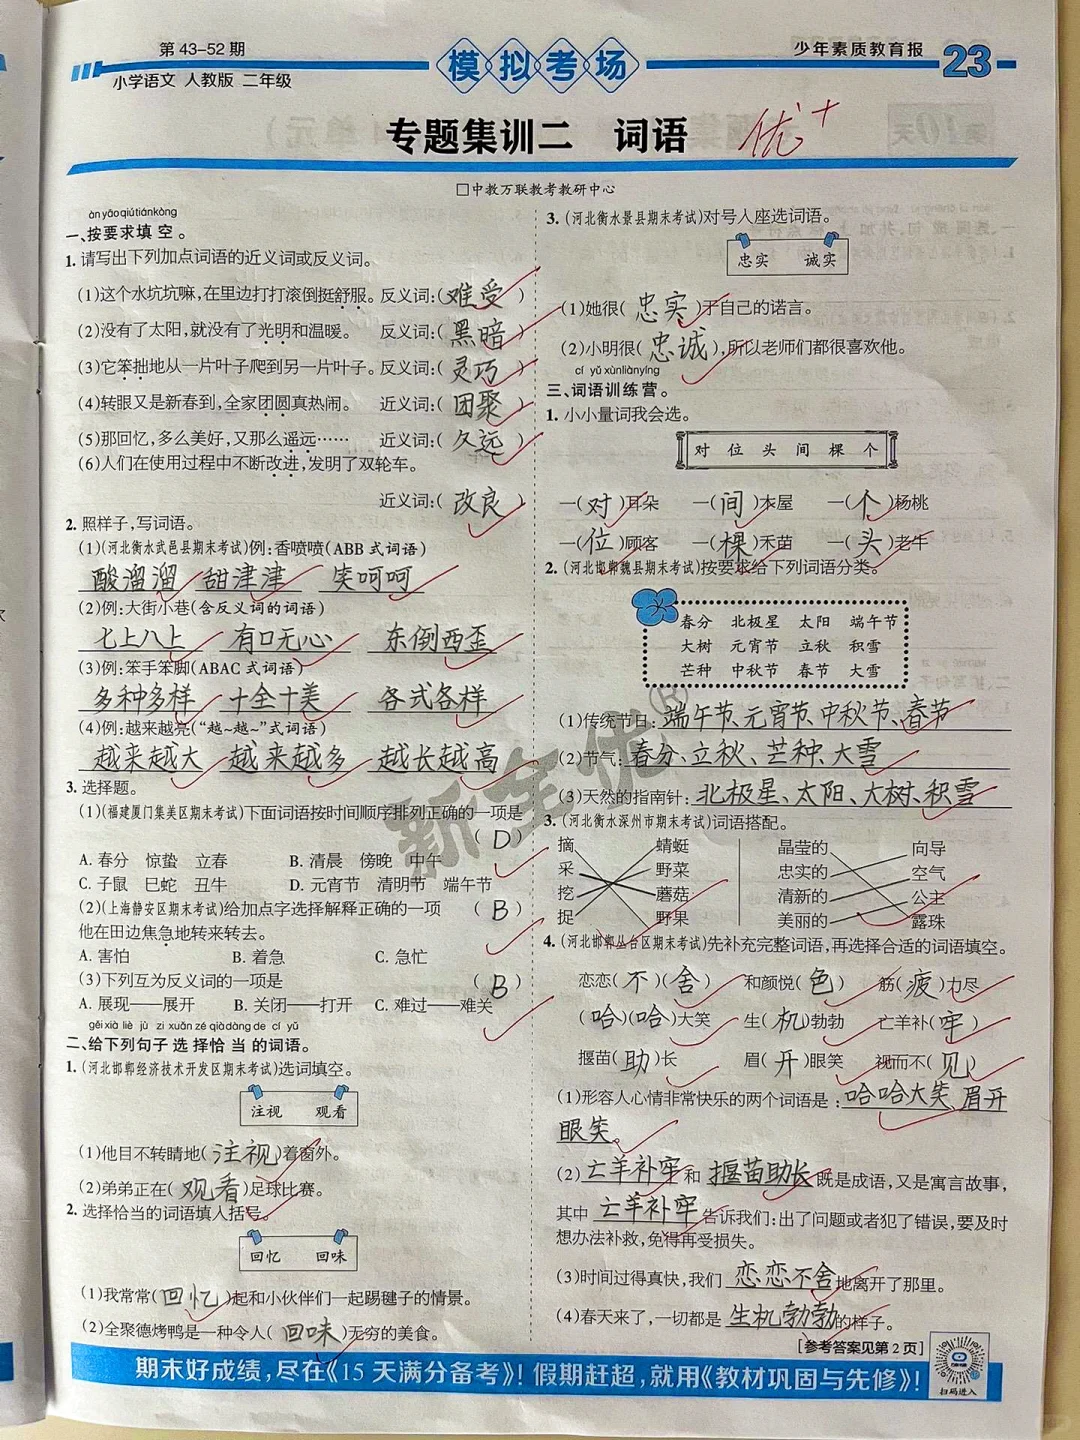 第 43-52 期
小学语文 人教版 二年级
模拟考场
少年素质教育报 23
专题集训二 词语
优+
□中教万联教考教研中心
àn yāo qiú tián kòng
一、按要求填空。
1. 请写出下列加点词语的近义词或反义词。
(1)这个水坑坑嘛,在里边打打滚倒挺舒服。 反义词:(难受)
(2)没有了太阳,就没有了光明和温暖。 反义词:(黑暗)
(3)它笨拙地从一片叶子爬到另一片叶子。 反义词:(灵巧)
(4)转眼又是新春到,全家团圆真热闹。 近义词:(团聚)
(5)那回忆,多么美好,又那么遥远…… 近义词:(久远)
(6)人们在使用过程中不断改进,发明了双轮车。
近义词:(改良)
2. 照样子,写词语。
(1)(河北衡水武邑县期末考试)例:香喷喷(ABB 式词语)
酸溜溜 甜津津 笑呵呵
(2)例:大街小巷(含反义词的词语)
七上八上 有口无心 东倒西歪
(3)例:笨手笨脚(ABAC 式词语)
多种多样 十全十美 各式各样
(4)例:越来越亮(“越~越~”式词语)
越来越大 越来越多 越长越高
3. 选择题。
(1)(福建厦门集美区期末考试)下面词语按时间顺序排列正确的一项是
(D)
A. 春分 惊蛰 立春 B. 清晨 傍晚 中午
C. 子鼠 巳蛇 丑牛 D. 元宵节 清明节 端午节
(2)(上海静安区期末考试)给加点字选择解释正确的一项 (B)
他在田边焦急地转来转去。
A. 害怕 B. 着急 C. 急忙
(3)下列互为反义词的一项是 (B)
A. 展现——展开 B. 关闭——打开 C. 难过——难关
gěi xià liè jù zi xuǎn zé qià dàng de cí yǔ
二、给下列句子选择恰当的词语。
1. (河北邯郸经济技术开发区期末考试)选词填空。
注视 观看
(1)他目不转睛地(注视)着窗外。
(2)弟弟正在(观看)足球比赛。
2. 选择恰当的词语填入括号。
回忆 回味
(1)我常常(回忆)起和小伙伴们一起踢毽子的情景。
(2)全聚德烤鸭是一种令人(回味)无穷的美食。
3. (河北衡水景县期末考试)对号入座选词语。
忠实 诚实
(1)她很(忠实)于自己的诺言。
(2)小明很(忠诚),所以老师们都很喜欢他。
cí yǔ xùn liàn yíng
三、词语训练营。
1. 小小量词我会选。
对 位 头 间 棵 个
一(对)耳朵 一(间)木屋 一(个)杨桃
一(位)顾客 一(棵)禾苗 一(头)老牛
2. (河北邯郸魏县期末考试)按要求给下列词语分类。
春分 北极星 太阳 端午节
大树 元宵节 立秋 积雪
芒种 中秋节 春节 大雪
(1)传统节日:端午节、元宵节、中秋节、春节
(2)节气:春分、立秋、芒种、大雪
(3)天然的指南针:北极星、太阳、大树、积雪
3. (河北衡水深州市期末考试)词语搭配。
摘 蜻蜓 晶莹的 向导
采 野菜 忠实的 空气
挖 蘑菇 清新的 公主
捉 野果 美丽的 露珠
4. (河北邯郸丛台区期末考试)先补充完整词语,再选择合适的词语填空。
恋恋(不)(舍) 和颜悦(色) 筋(疲)力尽
(哈)(哈)大笑 生(机)勃勃 亡羊补(牢)
揠苗(助)长 眉(开)眼笑 视而不(见)
(1)形容人心情非常快乐的两个词语是:哈哈大笑 眉开
眼笑。
(2)亡羊补牢和揠苗助长既是成语,又是寓言故事,
其中亡羊补牢告诉我们:出了问题或者犯了错误,要及时
想办法补救,免得再受损失。
(3)时间过得真快,我们恋恋不舍地离开了那里。
(4)春天来了,一切都是生机勃勃的样子。
[参考答案见第 2 页]
扫码进入
期末好成绩,尽在《15 天满分备考》!假期赶超,就用《教材巩固与先修》!